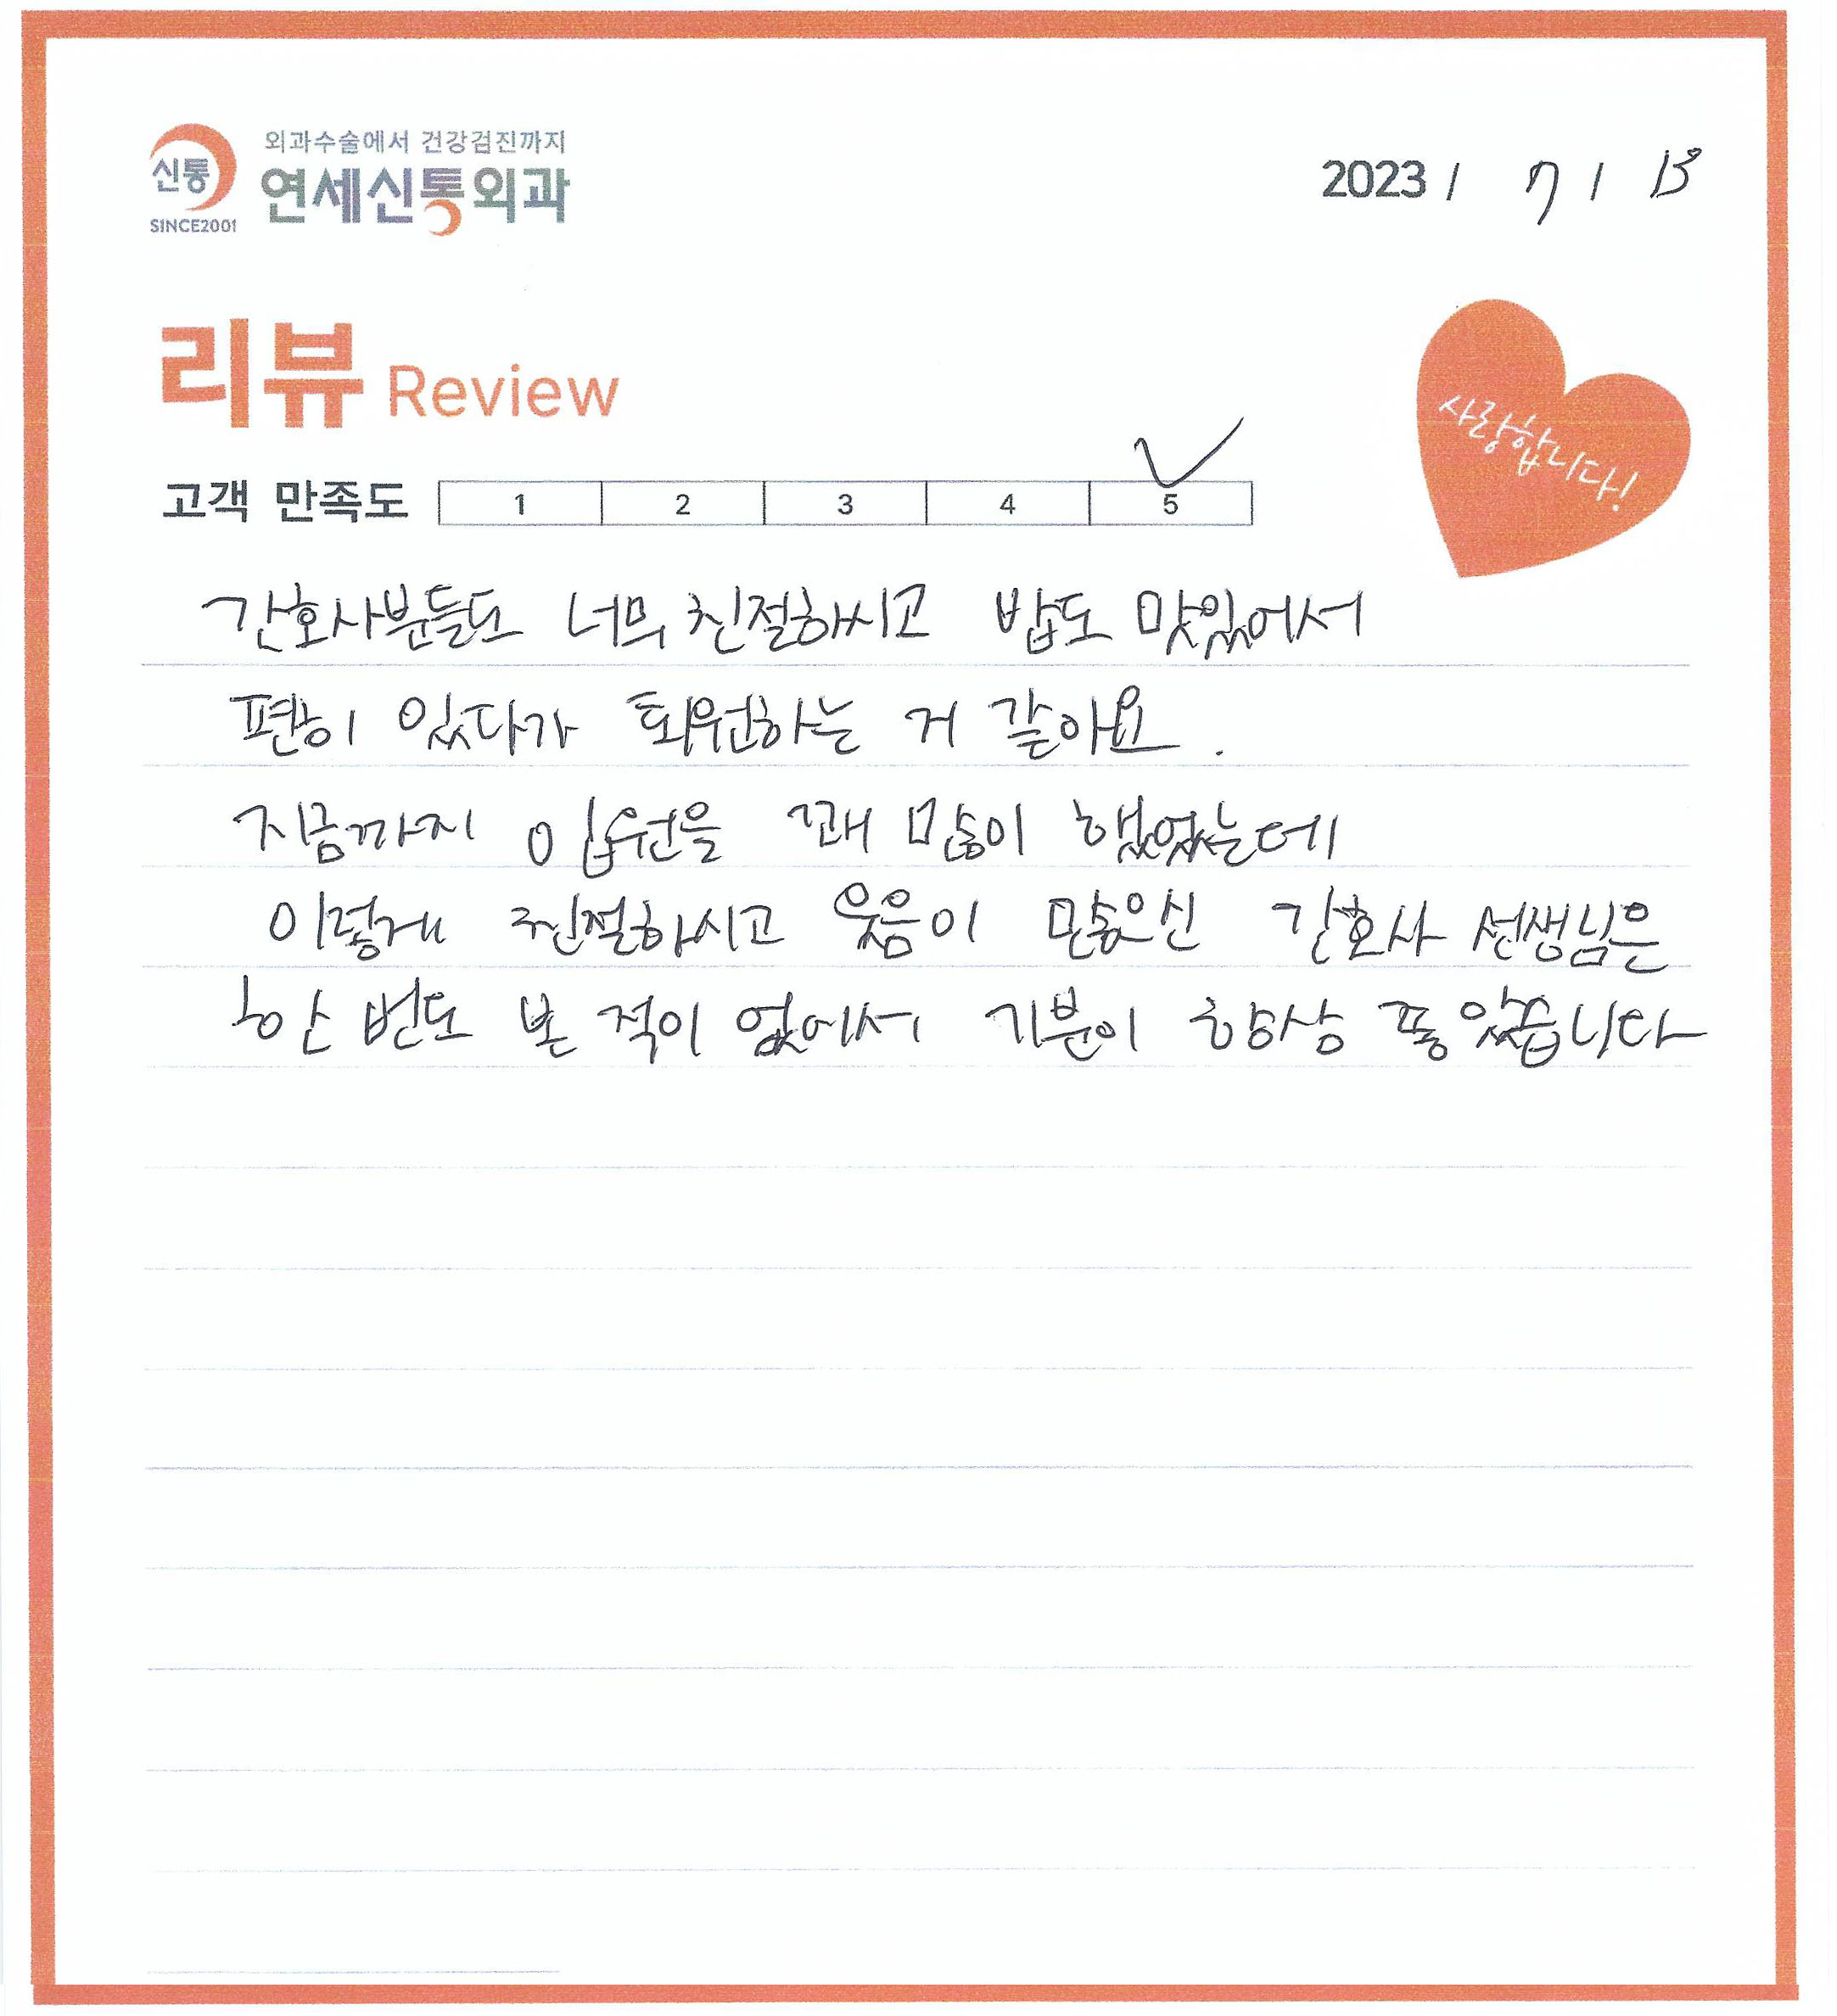 외과수술에서 건강검진까지
신통
연세신통외과
SINCE2001
2023 / 7 / 13
리뷰 Review
사랑합니다!
고객 만족도 1 2 3 4 5
간호사분들도 너무 친절하시고 밥도 맛있어서
편히 있다가 퇴원하는 거 같아요.
지금까지 입원을 꽤 많이 했었는데
이렇게 친절하시고 웃음이 많으신 간호사 선생님은
한 번도 본 적이 없어서 기분이 항상 좋았습니다